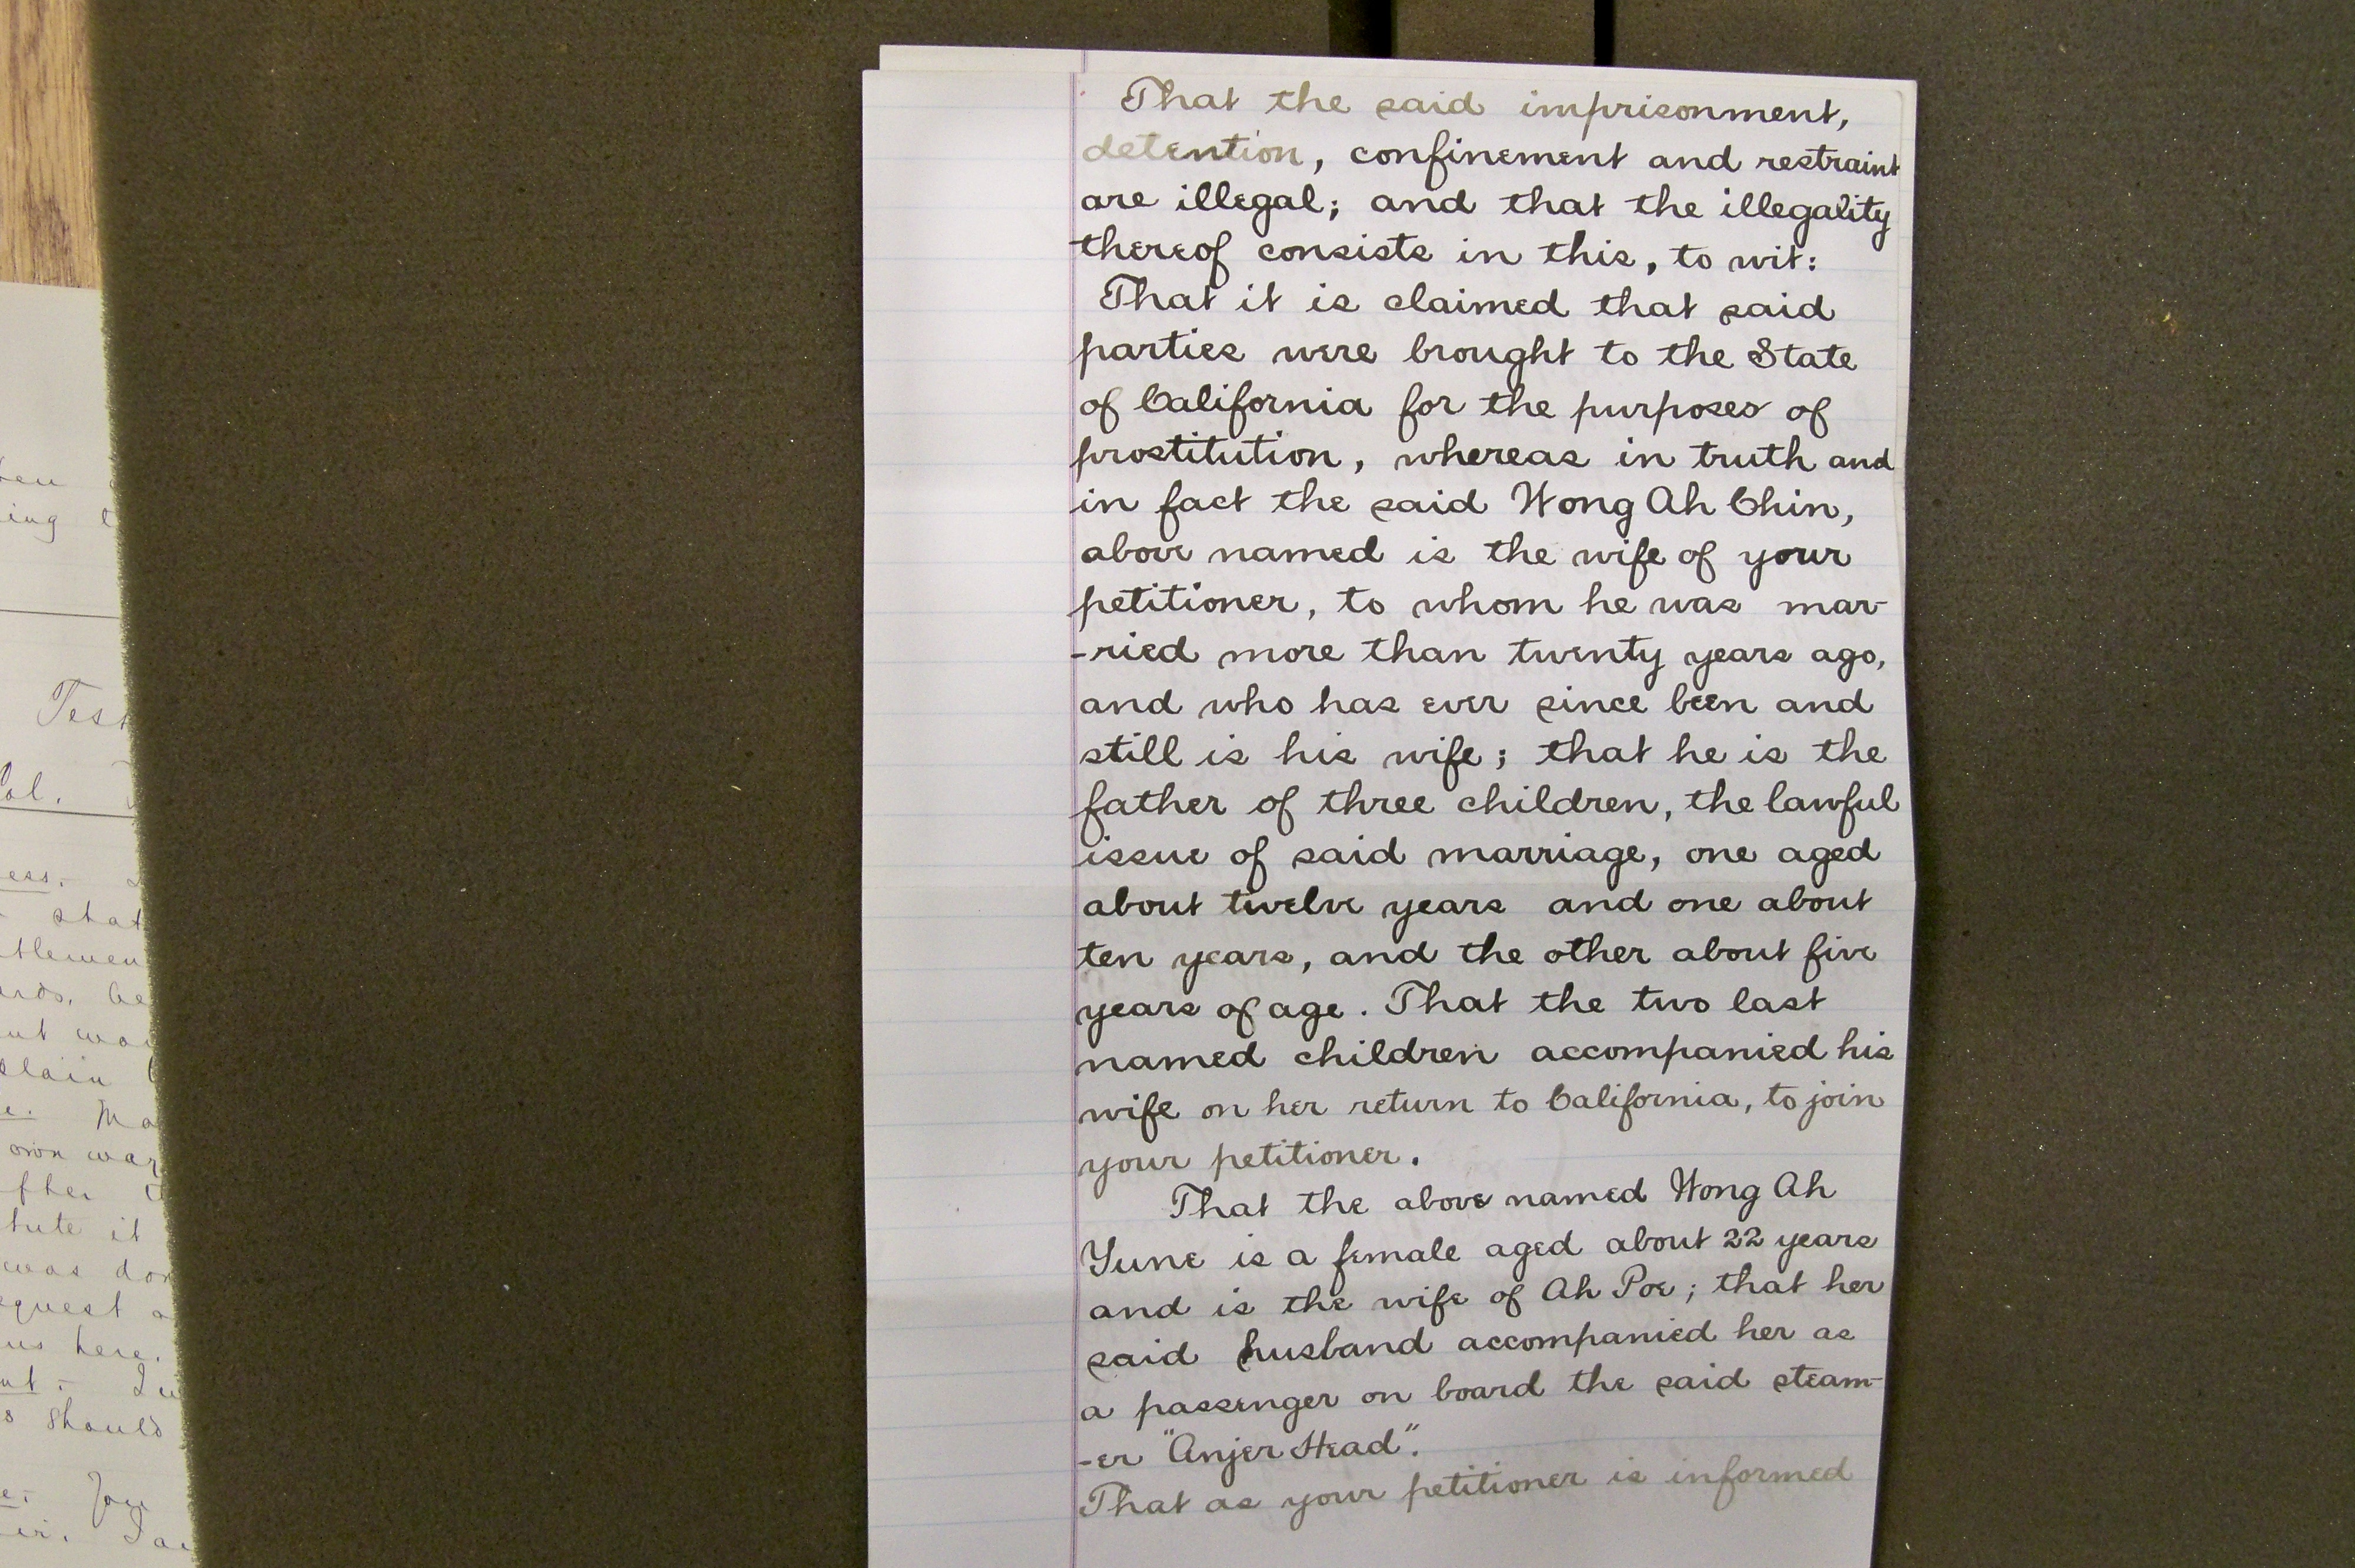 That the said imprisonment,
detention, confinement and restraint
are illegal; and that the illegality
thereof consists in this, to wit:
That it is claimed that said
parties were brought to the State
of California for the purposes of
prostitution, whereas in truth and
in fact the said Wong Ah Chin,
above named is the wife of your
petitioner, to whom he was mar-
-ried more than twenty years ago,
and who has ever since been and
still is his wife; that he is the
father of three children, the lawful
issue of said marriage, one aged
about twelve years and one about
ten years, and the other about five
years of age. That the two last
named children accompanied his
wife on her return to California, to join
your petitioner.
That the above named Wong Ah
Yune is a female aged about 22 years
and is the wife of Ah Poe; that her
said husband accompanied her as
a passenger on board the said steam-
-er "Anjer Head".
That as your petitioner is informed
ing
Test
Col.
ess.
stat
own way
tute it
was don
us here.
should